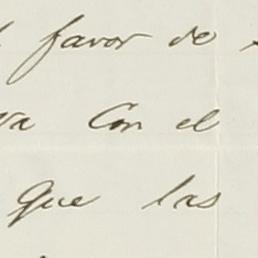 favor de
con el
que las